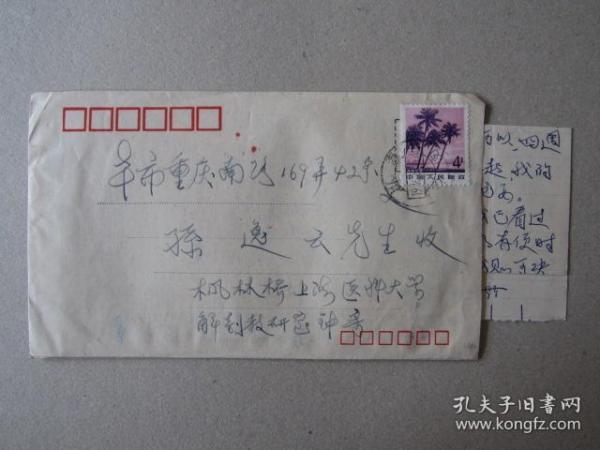 本市重庆南路169弄42号
孙逸云先生收
枫林桥上海医科大学
解剖教研室钟寄
4
中国人民邮政
所以,四週
起,我的
已看过
有便时
则可决
孔夫子旧书网
www.kongfz.com